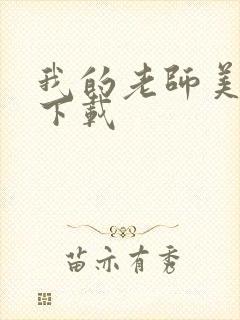 我的老师美
下載
苗亦有秀